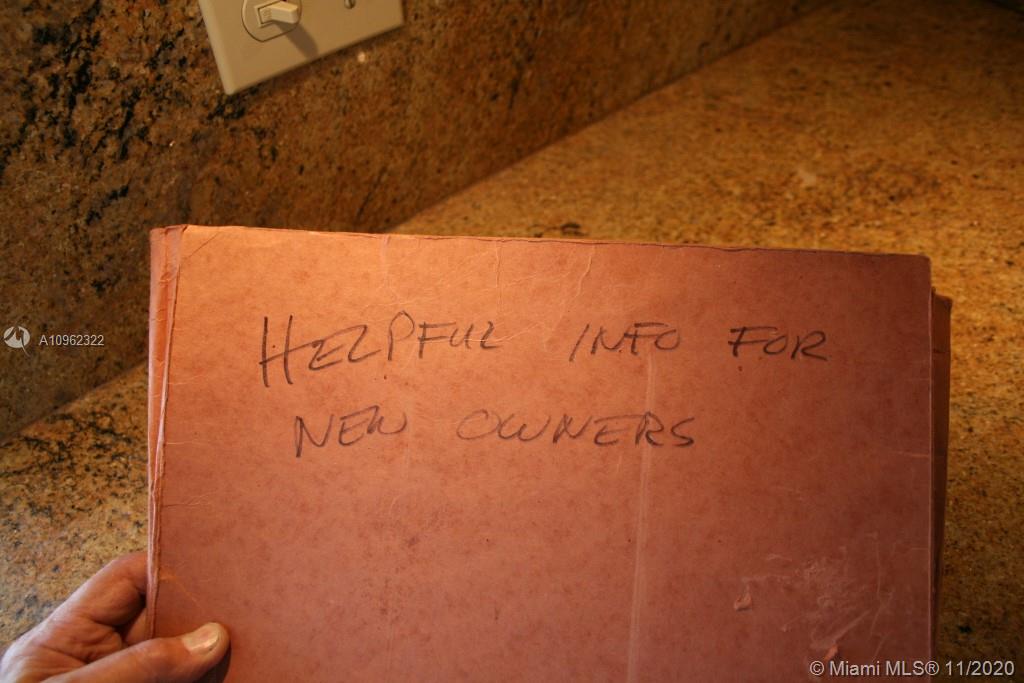 A10962322
HELPFUL INFO FOR
NEW OWNERS
© Miami MLS® 11/2020